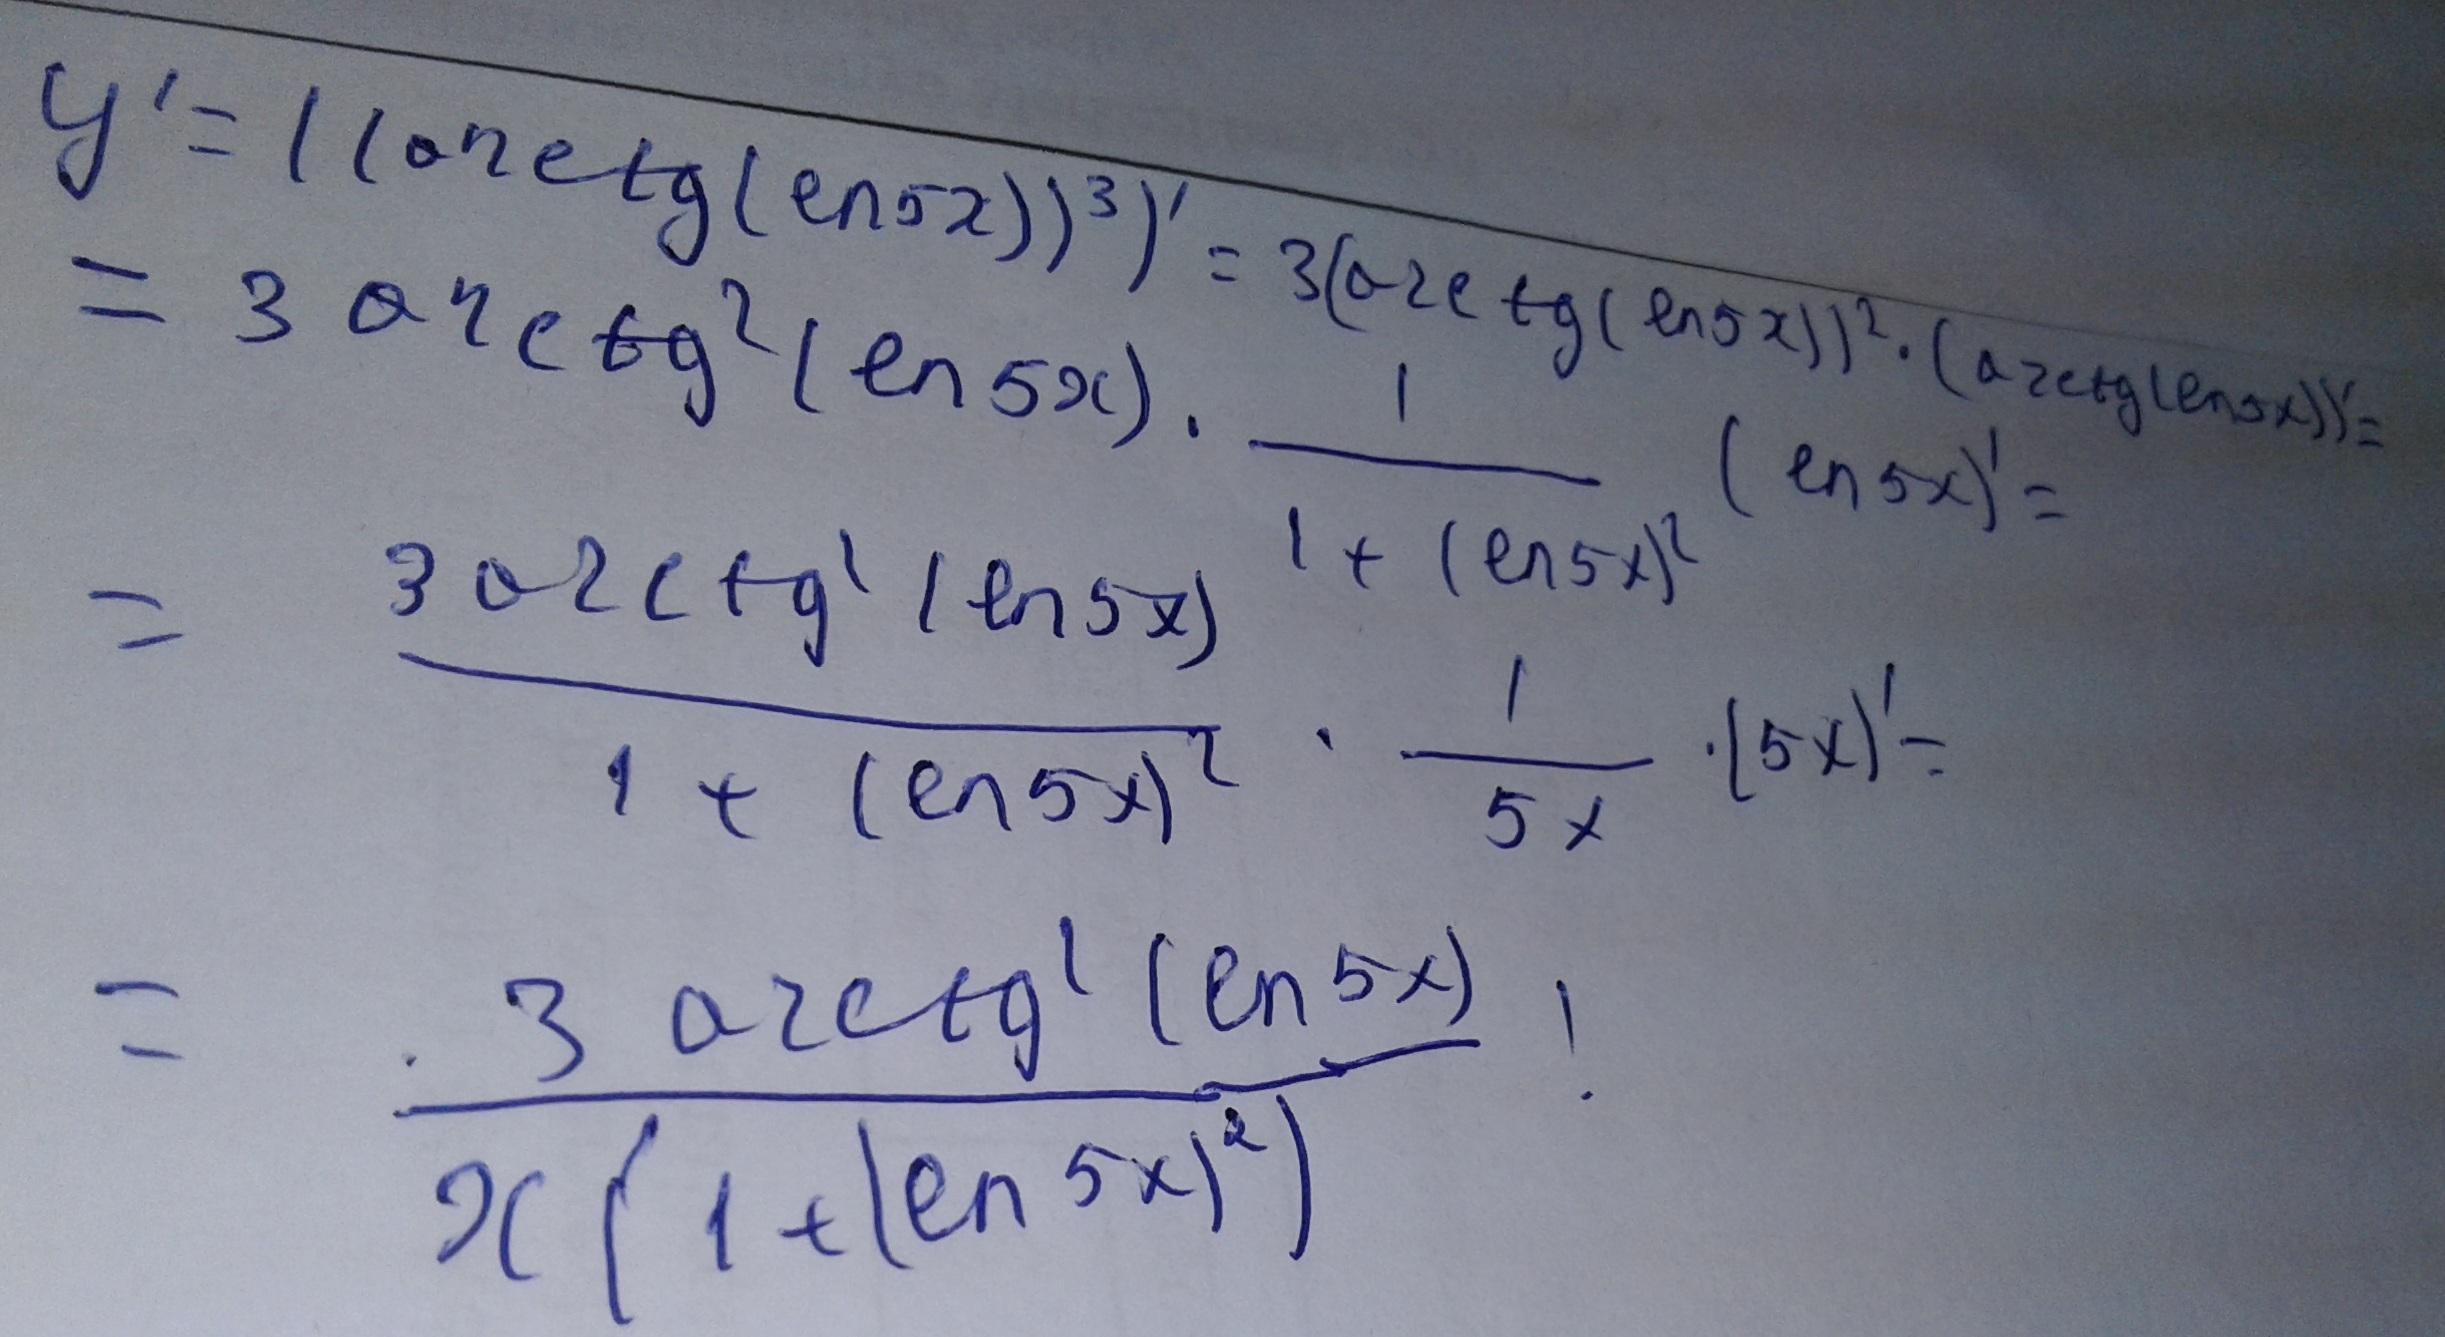 y' = ((arctg(ln5x))³)' = 3(arctg(ln5x))² · (arctg(ln5x))' =
= 3 arctg²(ln5x) · 1/(1 + (ln5x)²) (ln5x)' =
= 3 arctg²(ln5x)/(1 + (ln5x)²) · 1/(5x) · (5x)' =
= 3 arctg²(ln5x)/(x(1 + (ln5x)²)) !